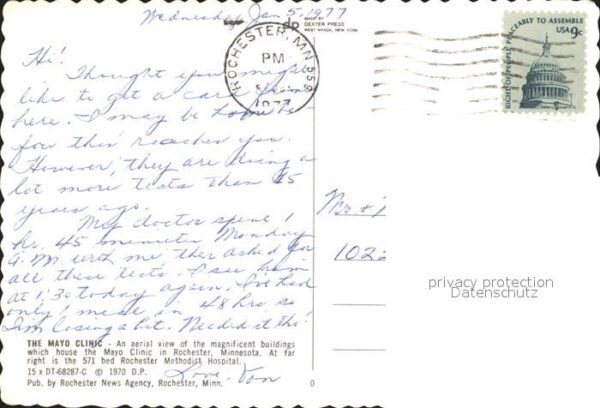 Wednesday, Jan 5, 1977
dp
MADE BY
DEXTER PRESS
WEST NYACK, NEW YORK
ROCHESTER, MN 559
PM
1977
RIGHT OF PEOPLE PEACEABLY TO ASSEMBLE
USA 9c
Hi!
Thought you might
like to get a card from
here. I may be home be-
fore this reaches you.
However, they are doing a
lot more tests than 15
years ago.
My doctor spent 1
hr. 45 minutes Monday
A.M. with me, then asked for
all these tests. I see him
at 1:30 today again. I've had
only 1 meal in 48 hrs. so
I'm losing a bit. Needed it tho!
Love, Von
Mr & 
102
privacy protection
Datenschutz
THE MAYO CLINIC - An aerial view of the magnificent buildings
which house the Mayo Clinic in Rochester, Minnesota. At far
right is the 571 bed Rochester Methodist Hospital.
15 x DT-68287-C © 1970 D.P.
Pub. by Rochester News Agency, Rochester, Minn.
0